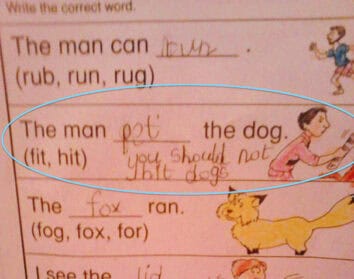 Write the correct word.
The man can run.
(rub, run, rug)
The man pet the dog.
(fit, hit) you should not
hit dogs
The fox ran.
(fog, fox, for)
I see the lid